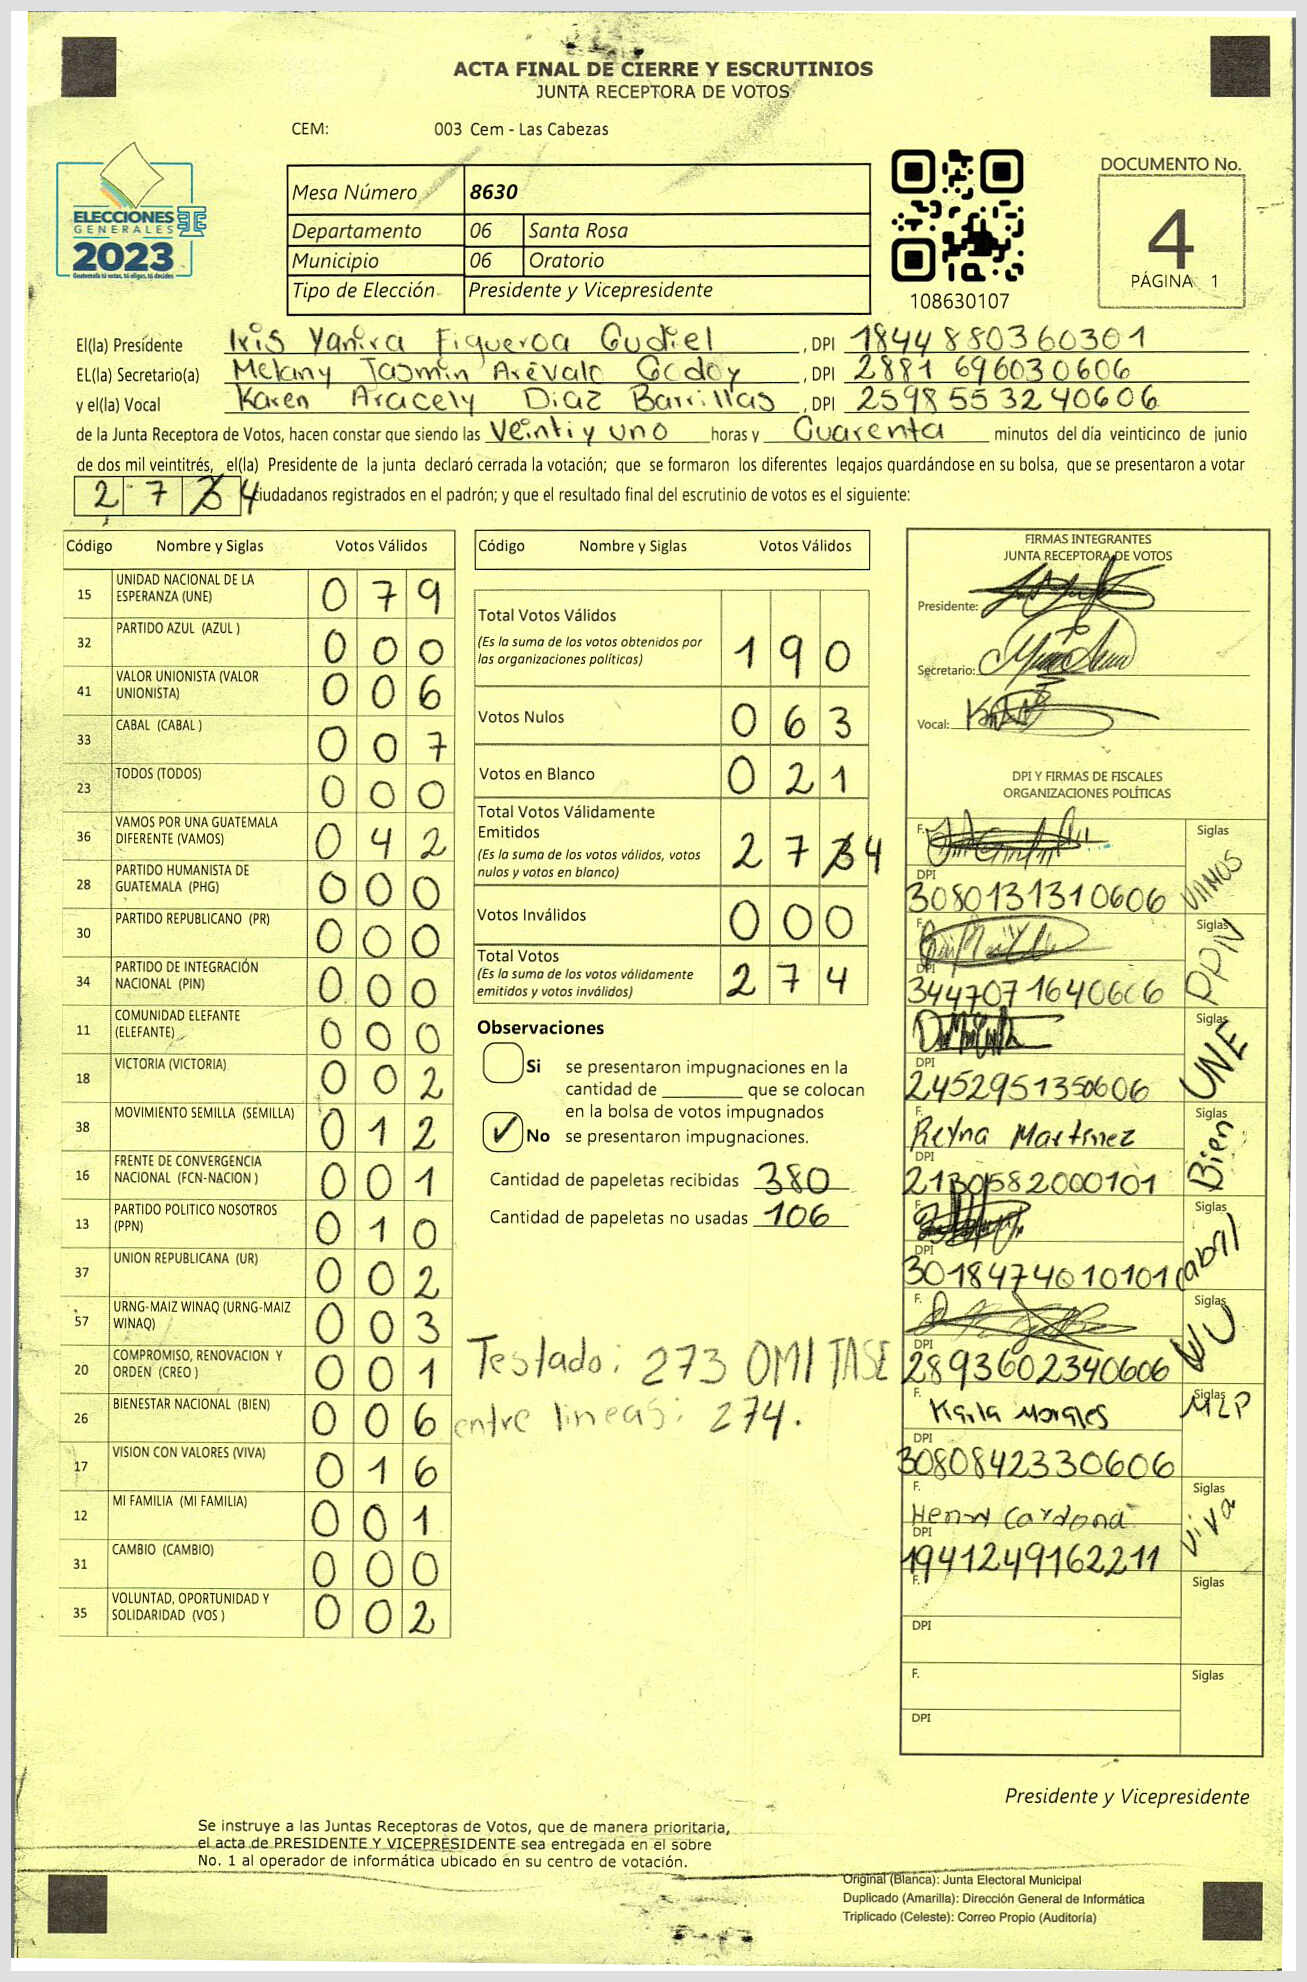 ACTA FINAL DE CIERRE Y ESCRUTINIOS
JUNTA RECEPTORA DE VOTOS
CEM: 003 Cem - Las Cabezas
ELECCIONES
GENERALES
2023
Guatemala tú votas, tú eliges, tú decides
Mesa Número 8630
Departamento 06 Santa Rosa
Municipio 06 Oratorio
Tipo de Elección Presidente y Vicepresidente
108630107
DOCUMENTO No.
4
PÁGINA 1
El(la) Presidente Iris Yanira Figueroa Gudiel, DPI 1844880360301
EL(la) Secretario(a) Melany Jasmin Arévalo Godoy, DPI 2881696030606
y el(la) Vocal Karen Aracely Diaz Barrillas, DPI 2598553240606
de la Junta Receptora de Votos, hacen constar que siendo las Veinti y uno horas y Cuarenta minutos del día veinticinco de junio
de dos mil veintitrés, el(la) Presidente de la junta declaró cerrada la votación; que se formaron los diferentes legajos quardándose en su bolsa, que se presentaron a votar
2 7 3 4 ciudadanos registrados en el padrón; y que el resultado final del escrutinio de votos es el siguiente:
Código Nombre y Siglas Votos Válidos
15 UNIDAD NACIONAL DE LA ESPERANZA (UNE) 0 7 9
32 PARTIDO AZUL (AZUL ) 0 0 0
41 VALOR UNIONISTA (VALOR UNIONISTA) 0 0 6
33 CABAL (CABAL ) 0 0 7
23 TODOS (TODOS) 0 0 0
36 VAMOS POR UNA GUATEMALA DIFERENTE (VAMOS) 0 4 2
28 PARTIDO HUMANISTA DE GUATEMALA (PHG) 0 0 0
30 PARTIDO REPUBLICANO (PR) 0 0 0
34 PARTIDO DE INTEGRACIÓN NACIONAL (PIN) 0 0 0
11 COMUNIDAD ELEFANTE (ELEFANTE) 0 0 0
18 VICTORIA (VICTORIA) 0 0 2
38 MOVIMIENTO SEMILLA (SEMILLA) 0 1 2
16 FRENTE DE CONVERGENCIA NACIONAL (FCN-NACION ) 0 0 1
13 PARTIDO POLITICO NOSOTROS (PPN) 0 1 0
37 UNION REPUBLICANA (UR) 0 0 2
57 URNG-MAIZ WINAQ (URNG-MAIZ WINAQ) 0 0 3
20 COMPROMISO, RENOVACION Y ORDEN (CREO ) 0 0 1
26 BIENESTAR NACIONAL (BIEN) 0 0 6
17 VISION CON VALORES (VIVA) 0 1 6
12 MI FAMILIA (MI FAMILIA) 0 0 1
31 CAMBIO (CAMBIO) 0 0 0
35 VOLUNTAD, OPORTUNIDAD Y SOLIDARIDAD (VOS ) 0 0 2
Código Nombre y Siglas Votos Válidos
Total Votos Válidos
(Es la suma de los votos obtenidos por las organizaciones políticas) 1 9 0
Votos Nulos 0 6 3
Votos en Blanco 0 2 1
Total Votos Válidamente Emitidos
(Es la suma de los votos válidos, votos nulos y votos en blanco) 2 7 3 4
Votos Inválidos 0 0 0
Total Votos
(Es la suma de los votos válidamente emitidos y votos inválidos) 2 7 4
Observaciones
Si se presentaron impugnaciones en la
cantidad de ________ que se colocan
en la bolsa de votos impugnados
✓ No se presentaron impugnaciones.
Cantidad de papeletas recibidas 380
Cantidad de papeletas no usadas 106
Testado: 273 OMITASE
entre lineas: 274.
FIRMAS INTEGRANTES
JUNTA RECEPTORA DE VOTOS
Presidente:
Secretario:
Vocal:
DPI Y FIRMAS DE FISCALES
ORGANIZACIONES POLÍTICAS
F. Siglas VAMOS
DPI 3080131310606
F. Siglas PPN
DPI 3447071640606
Siglas UNE
DPI 2452951350606
F. Reyna Martínez Siglas Bien
DPI 2130582000101
F. Siglas Cabal
DPI 3018474010101
F. Siglas
DPI 2893602340606
F. Karla Morales Siglas MLP
DPI 3080842330606
F. Henry Cardona Siglas Viva
DPI 1941249162211
F. Siglas
DPI
F. Siglas
DPI
Presidente y Vicepresidente
Se instruye a las Juntas Receptoras de Votos, que de manera prioritaria,
el acta de PRESIDENTE Y VICEPRESIDENTE sea entregada en el sobre
No. 1 al operador de informática ubicado en su centro de votación.
Original (Blanca): Junta Electoral Municipal
Duplicado (Amarilla): Dirección General de Informática
Triplicado (Celeste): Correo Propio (Auditoría)